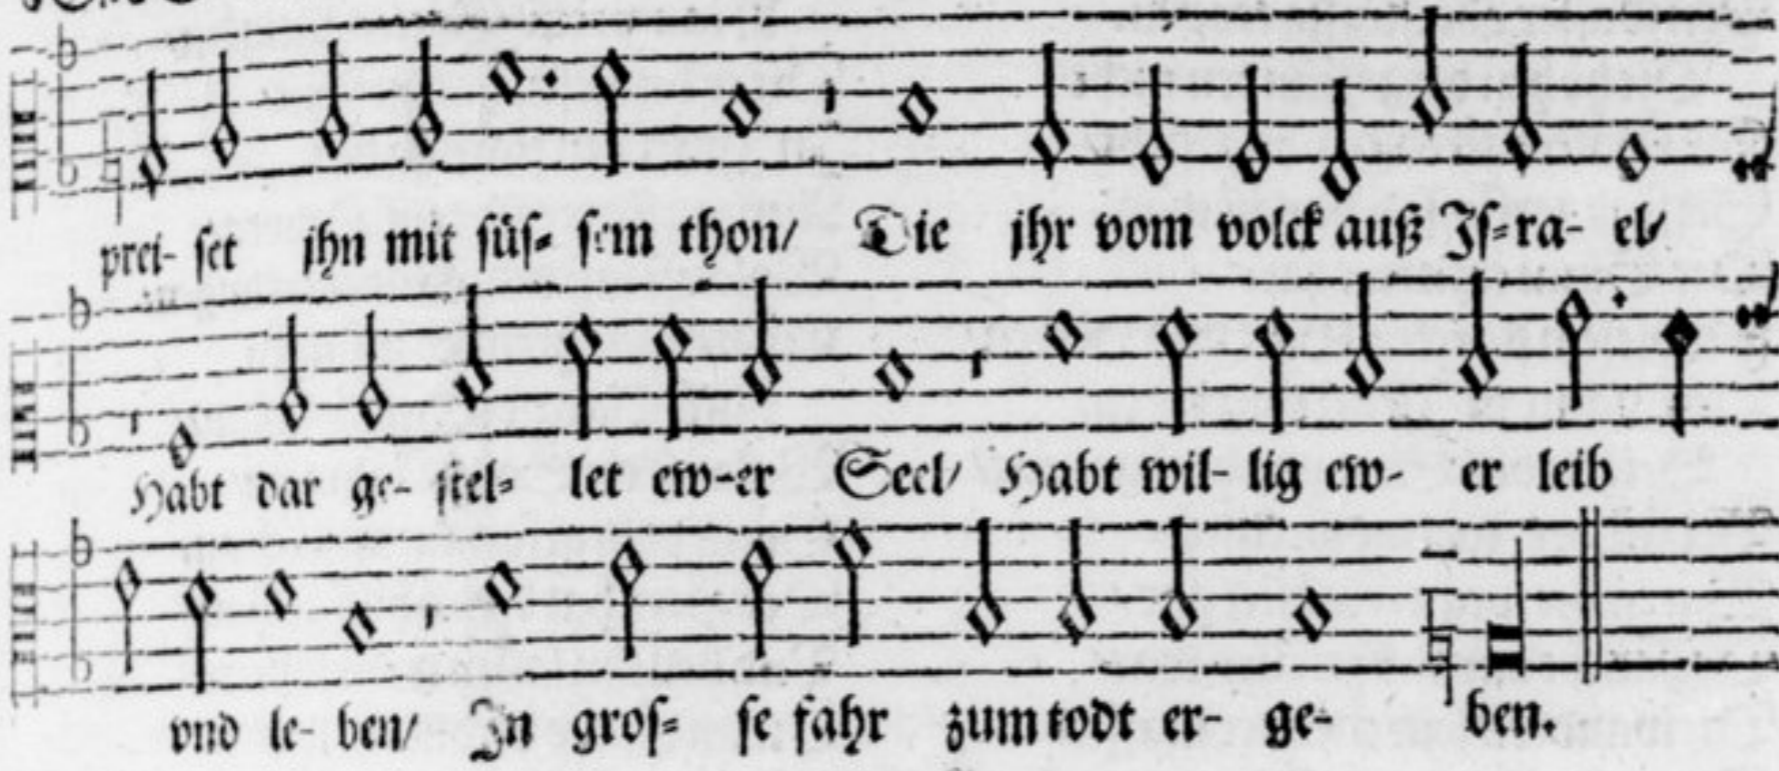 prei- set jhn mit süs- sem thon/ Die jhr vom volck auß Js-ra- el/
Habt dar ge- stel- let ew-er Seel/ Habt wil- lig ew- er leib
vnd le- ben/ Jn gros- se fahr zum todt er- ge- ben.